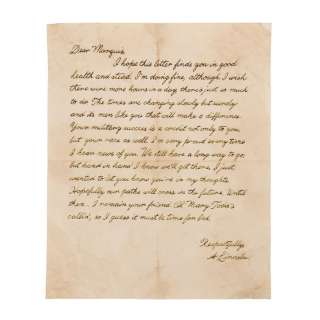 Dear Marquis,
I hope this letter finds you in good
health and stead. I'm doing fine, although I wish
there were more hours in a day, there's just so much
to do. The times are changing slowly but surely
and its men like you that will make a difference.
Your military success is a credit not only to you,
but your race as well. I'm very proud every time
I hear news of you. We still have a long way to go
but hand in hand I know we'll get there. I just
wanted to let you know you're in my thoughts.
Hopefully our paths will cross in the future. Until
then... I remain your friend. Ol' Mary Todd's
callin', so I guess it must be time for bed.
Respectfully,
A. Lincoln